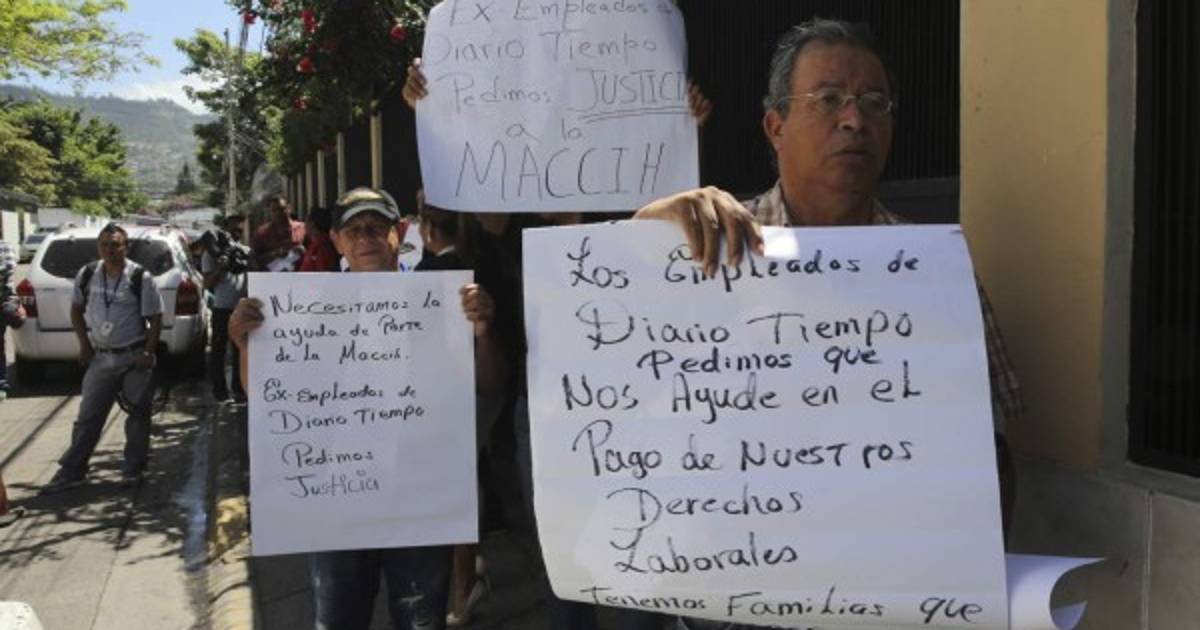 Ex-Empleados
Diario Tiempo
Pedimos JUSTICI
a la
MACCIH
Necesitamos la
ayuda de Parte
de la Maccih.
Ex-Empleados de
Diario Tiempo
Pedimos
Justicia
Los Empleados de
Diario Tiempo
Pedimos que
Nos Ayude en el
Pago de Nuestros
Derechos
Laborales
Tenemos Familias que